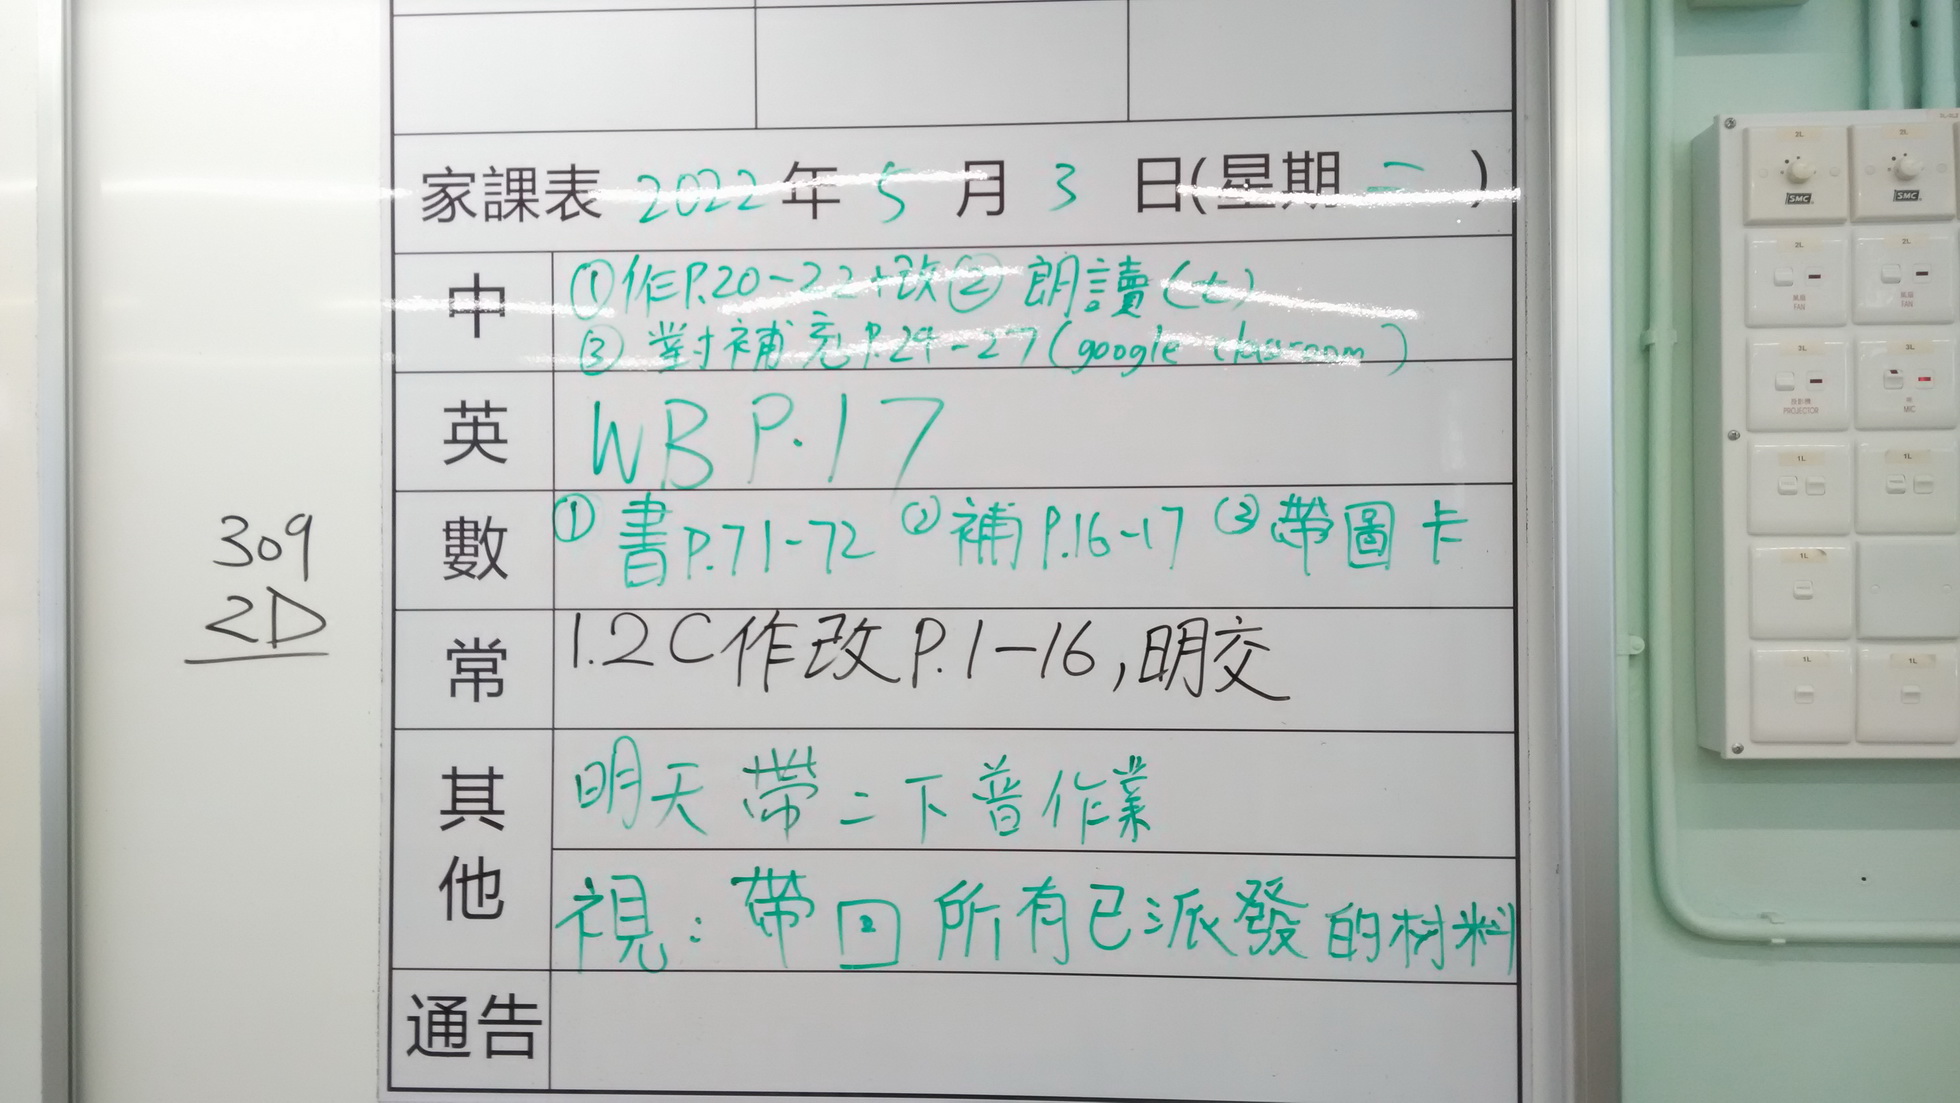 家課表 2022 年 5 月 3 日(星期二)
中
①作P.20-22+改② 朗讀(七)
③ 對補充P.24-27(google classroom)
英
WB P.17
數
① 書P.71-72 ②補P.16-17 ③帶圖卡
常
1.2C作改P.1-16,明交
其他
明天帶二下普作業
視:帶回所有已派發的材料
通告
309
2D
2L
2L
SMC
SMC
2L
2L
風扇
FAN
風扇
FAN
2L
3L
投影機
PROJECTOR
咪
MIC
1L
1L
1L
1L
1L